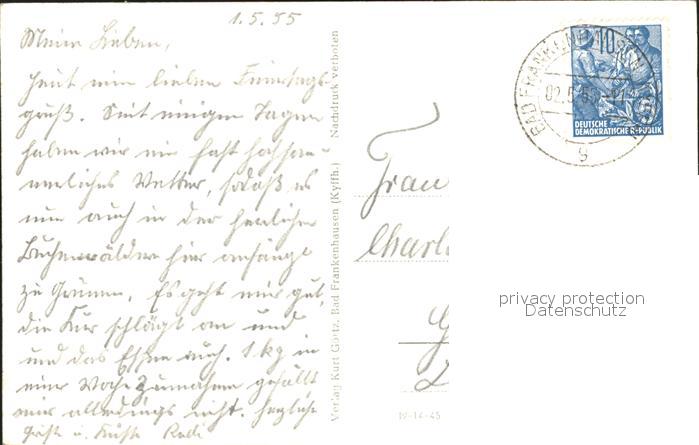 1.5.55
Meine Lieben,
heut nun lieben Feiertags-
gruß. Seit einigen Tagen
haben wir ein fast hochsom-
merliches Wetter, sodaß es
nun auch in den herrlichen
Buchenwäldern hier anfängt
zu Grünen. Es geht mir gut,
die Kur schlägt an und
und das Essen auch. 1 kg in
einer Woche Zunahme gefällt
mir allerdings nicht. Herzliche
Grüße u. Küsse
Verlag Kurt Görtz, Bad Frankenhausen (Kyffh.) Nachdruck verboten
BAD FRANKENHAUSEN
02.5.55
g
10
DEUTSCHE
DEMOKRATISCHE REPUBLIK
Frau
Charl
privacy protection
Datenschutz
IV-14-45